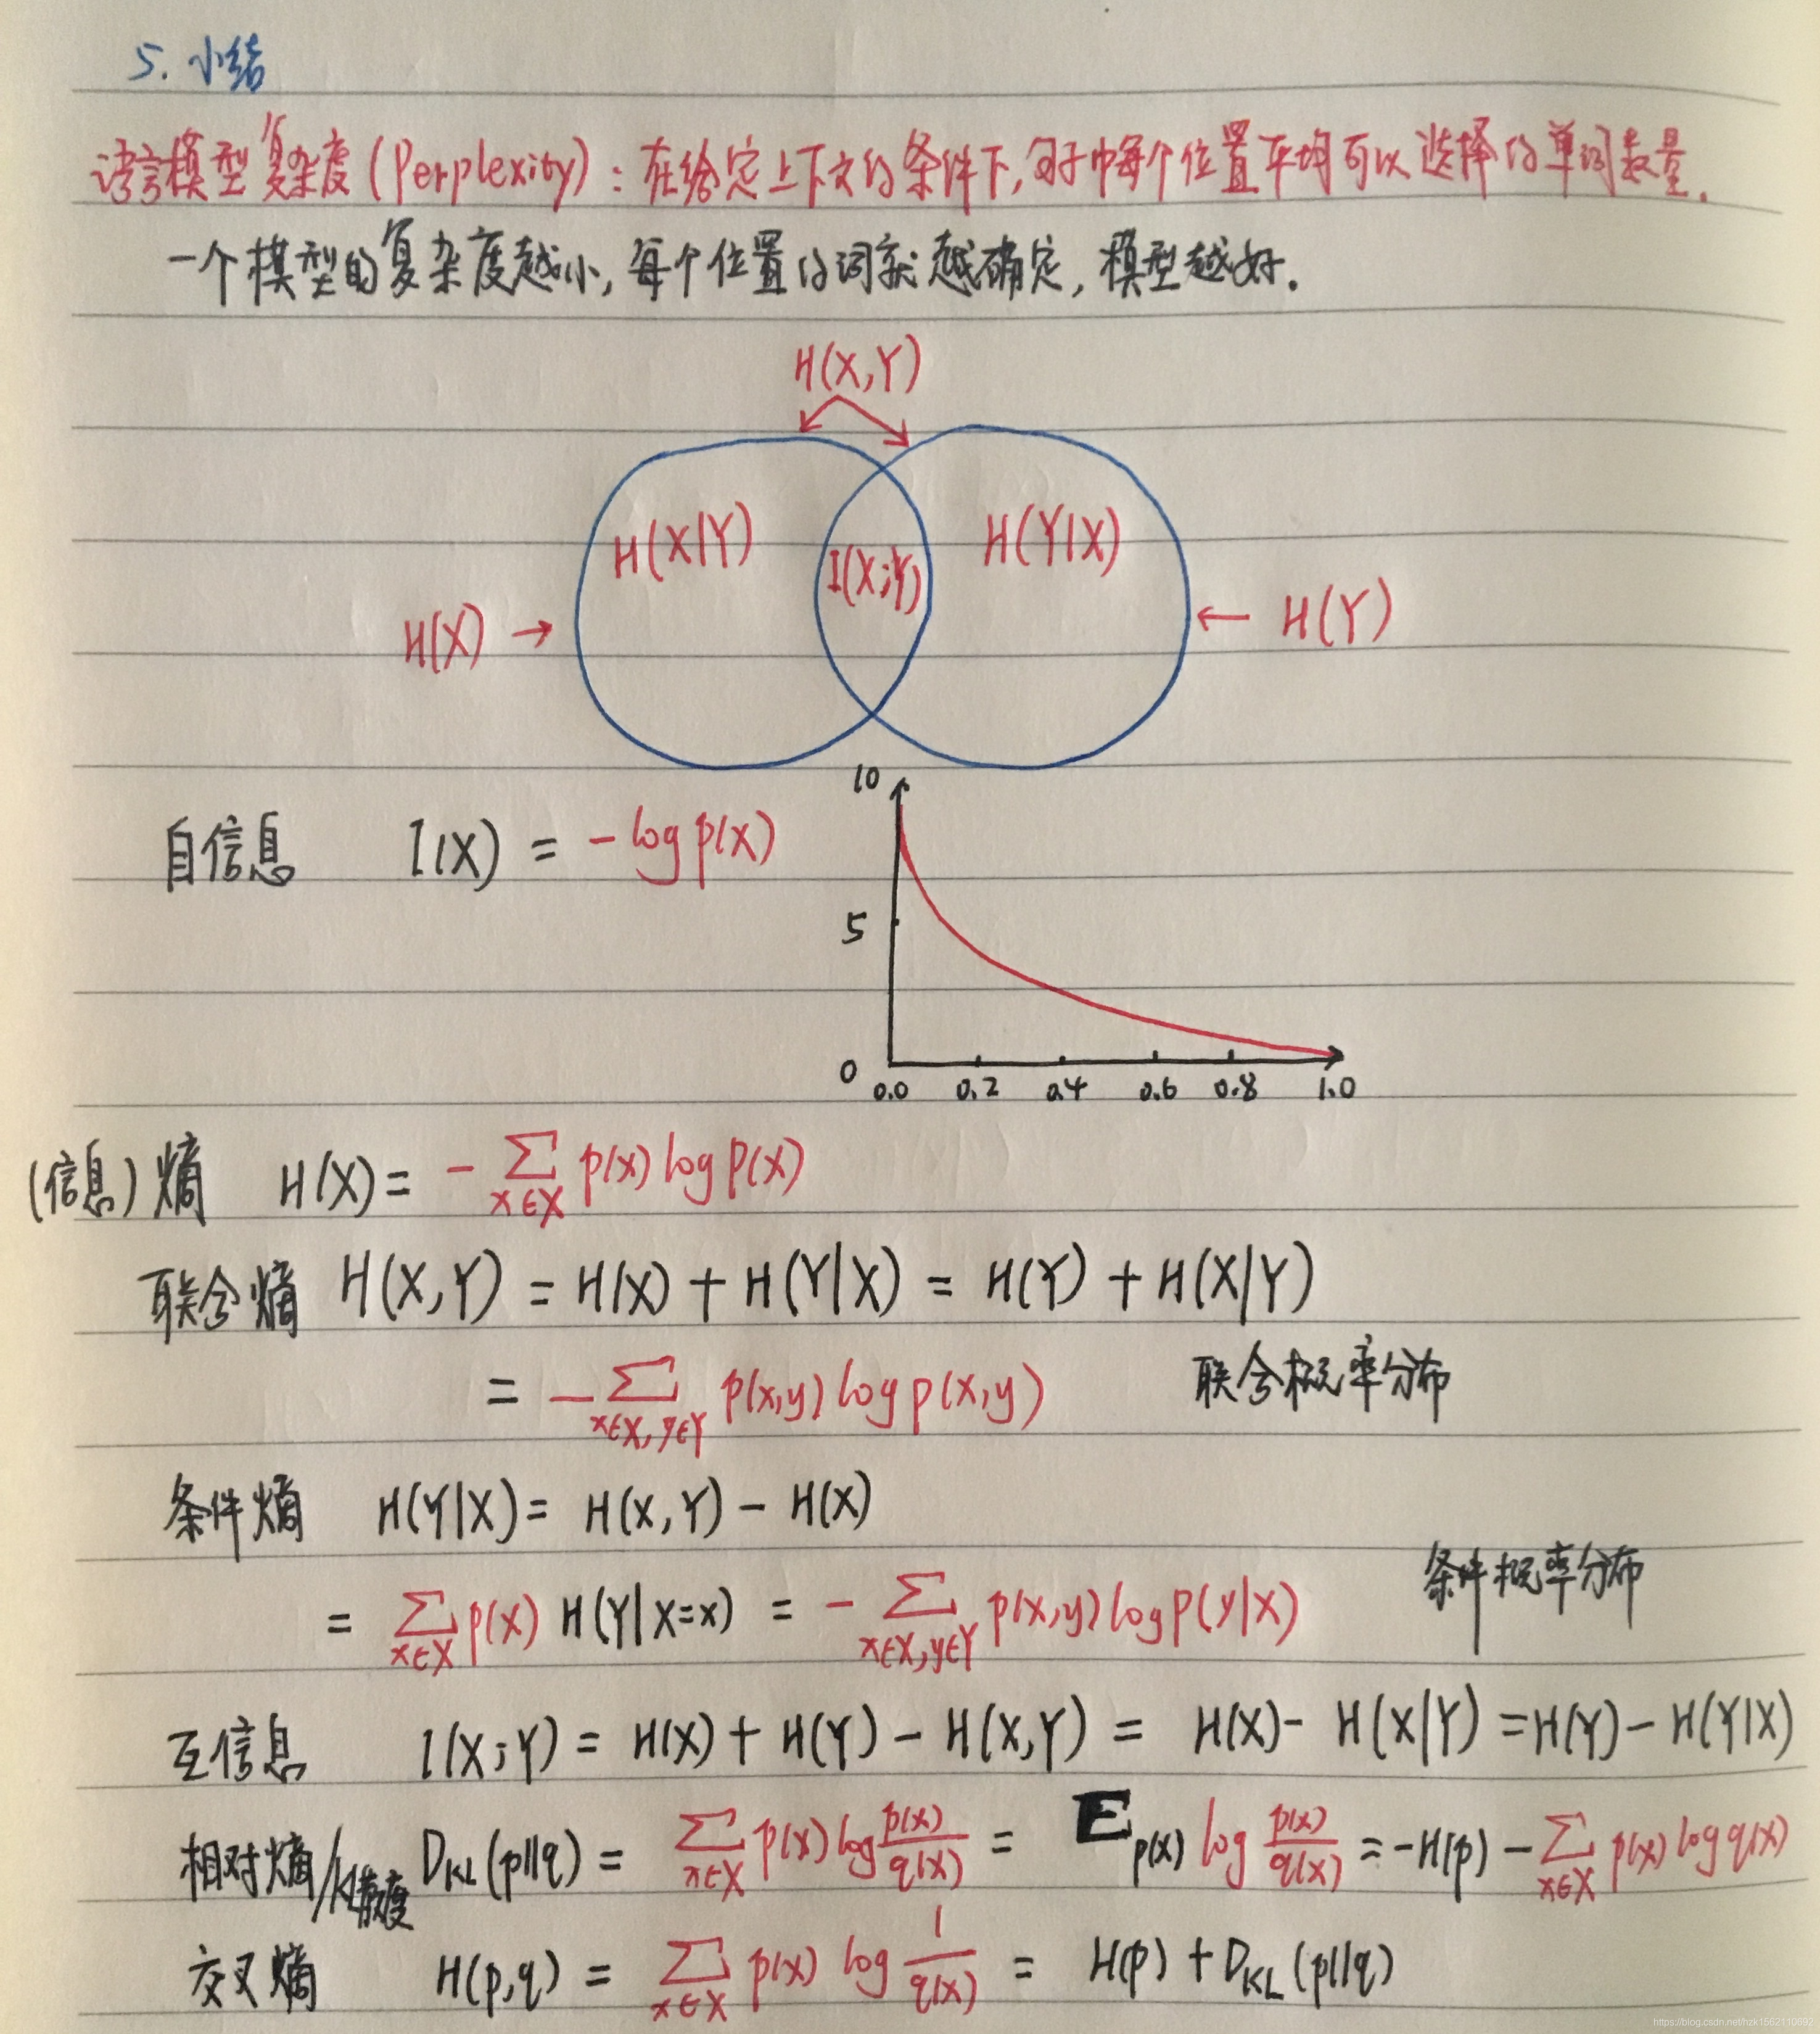 5. 小结
语言模型复杂度(Perplexity): 在给定上下文的条件下,句子中每个位置平均可以选择的单词数量.
一个模型的复杂度越小,每个位置的词就越确定,模型越好.
H(X,Y)
H(X|Y) I(X;Y) H(Y|X)
H(X) → ← H(Y)
10
自信息 I(X) = -log p(x)
5
0
0.0 0.2 0.4 0.6 0.8 1.0
(信息)熵 H(X) = -∑x∈X p(x) log p(x)
联合熵 H(X,Y) = H(X) + H(Y|X) = H(Y) + H(X|Y)
= -∑x∈X,y∈Y p(x,y) log p(x,y) 联合概率分布
条件熵 H(Y|X) = H(X,Y) - H(X)
条件概率分布
= ∑x∈X p(x) H(Y|X=x) = -∑x∈X,y∈Y p(x,y) log p(y|x)
互信息 I(X;Y) = H(X) + H(Y) - H(X,Y) = H(X) - H(X|Y) = H(Y) - H(Y|X)
相对熵/KL散度 DKL(p||q) = ∑x∈X p(x) log p(x)/q(x) = Ep(x) log p(x)/q(x) = -H(p) - ∑x∈X p(x) log q(x)
交叉熵 H(p,q) = ∑x∈X p(x) log 1/q(x) = H(p) + DKL(p||q)